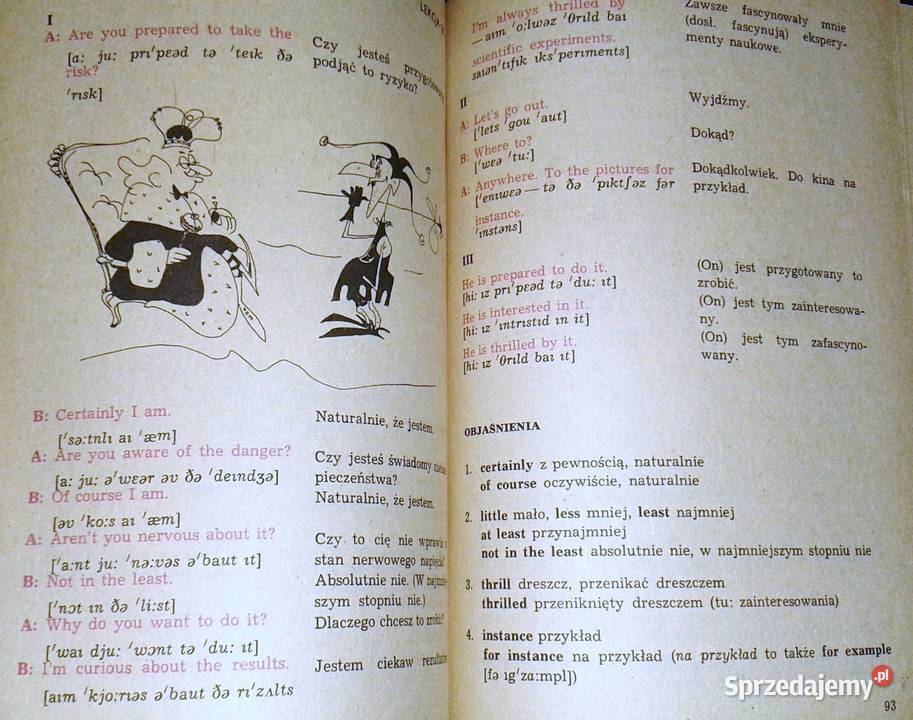 LEKCJA
I
A: Are you prepared to take the
[a: ju: prɪ'pεəd tə 'teɪk ðə
risk?
'rɪsk]
Czy jesteś
podjąć to ryzyko?
B: Certainly I am.
['sə:tnlɪ aɪ 'æm]
Naturalnie, że jestem.
A: Are you aware of the danger?
[a: ju: ə'wεər əv ðə 'deɪndʒə]
Czy jesteś świadomy
pieczeństwa?
B: Of course I am.
[əv 'ko:s aɪ 'æm]
Naturalnie, że jestem.
A: Aren't you nervous about it?
['a:nt ju: 'nə:vəs ə'baut ɪt]
Czy to cię nie wprawia
stan nerwowego napięcia?
B: Not in the least.
['nɔt ɪn ðə 'li:st]
Absolutnie nie. (W najmniej-
szym stopniu nie.)
A: Why do you want to do it?
['waɪ dju: 'wɔnt tə 'du: ɪt]
Dlaczego chcesz to zrobić?
B: I'm curious about the results.
[aɪm 'kjo:rɪəs ə'baut ðə rɪ'zʌlts
Jestem ciekaw
I'm always thrilled by
—aɪm 'o:lwəz 'θrɪld baɪ
scientific experiments.
saɪən'tɪfɪk ɪks'perɪments]
Zawsze fascynowały mnie
(dosł. fascynują) ekspery-
menty naukowe.
II
A: Let's go out.
['lets 'gou 'aut]
Wyjdźmy.
B: Where to?
['wεə 'tu:]
Dokąd?
A: Anywhere. To the pictures for
['enɪwεə — tə ðə 'pɪktʃəz fər
instance.
'ɪnstəns]
Dokądkolwiek. Do kina na
przykład.
III
He is prepared to do it.
[hi: ɪz prɪ'pεəd tə 'du: ɪt]
(On) jest przygotowany to
zrobić.
He is interested in it.
[hi: ɪz 'ɪntrɪstɪd ɪn ɪt]
(On) jest tym zainteresowa-
ny.
He is thrilled by it.
[hi: ɪz 'θrɪld baɪ ɪt]
(On) jest tym zafascyno-
wany.
OBJAŚNIENIA
1. certainly z pewnością, naturalnie
of course oczywiście, naturalnie
2. little mało, less mniej, least najmniej
at least przynajmniej
not in the least absolutnie nie, w najmniejszym stopniu nie
3. thrill dreszcz, przenikać dreszczem
thrilled przeniknięty dreszczem (tu: zainteresowania)
4. instance przykład
for instance na przykład (na przykład to także for example
[fə ɪg'za:mpl])
93
Sprzedajemy.pl